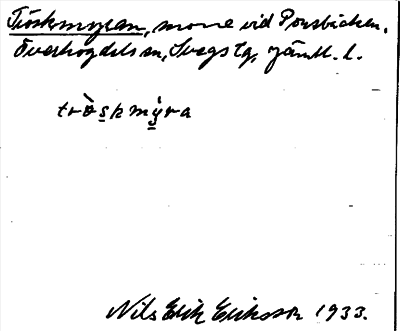 Tröskmyran, myr vid Porsbäcken.
Överhogdals sn, Svegs tg, Jämtl. l.
trò̀skmýra
Nils Erik Eriksson 1933.